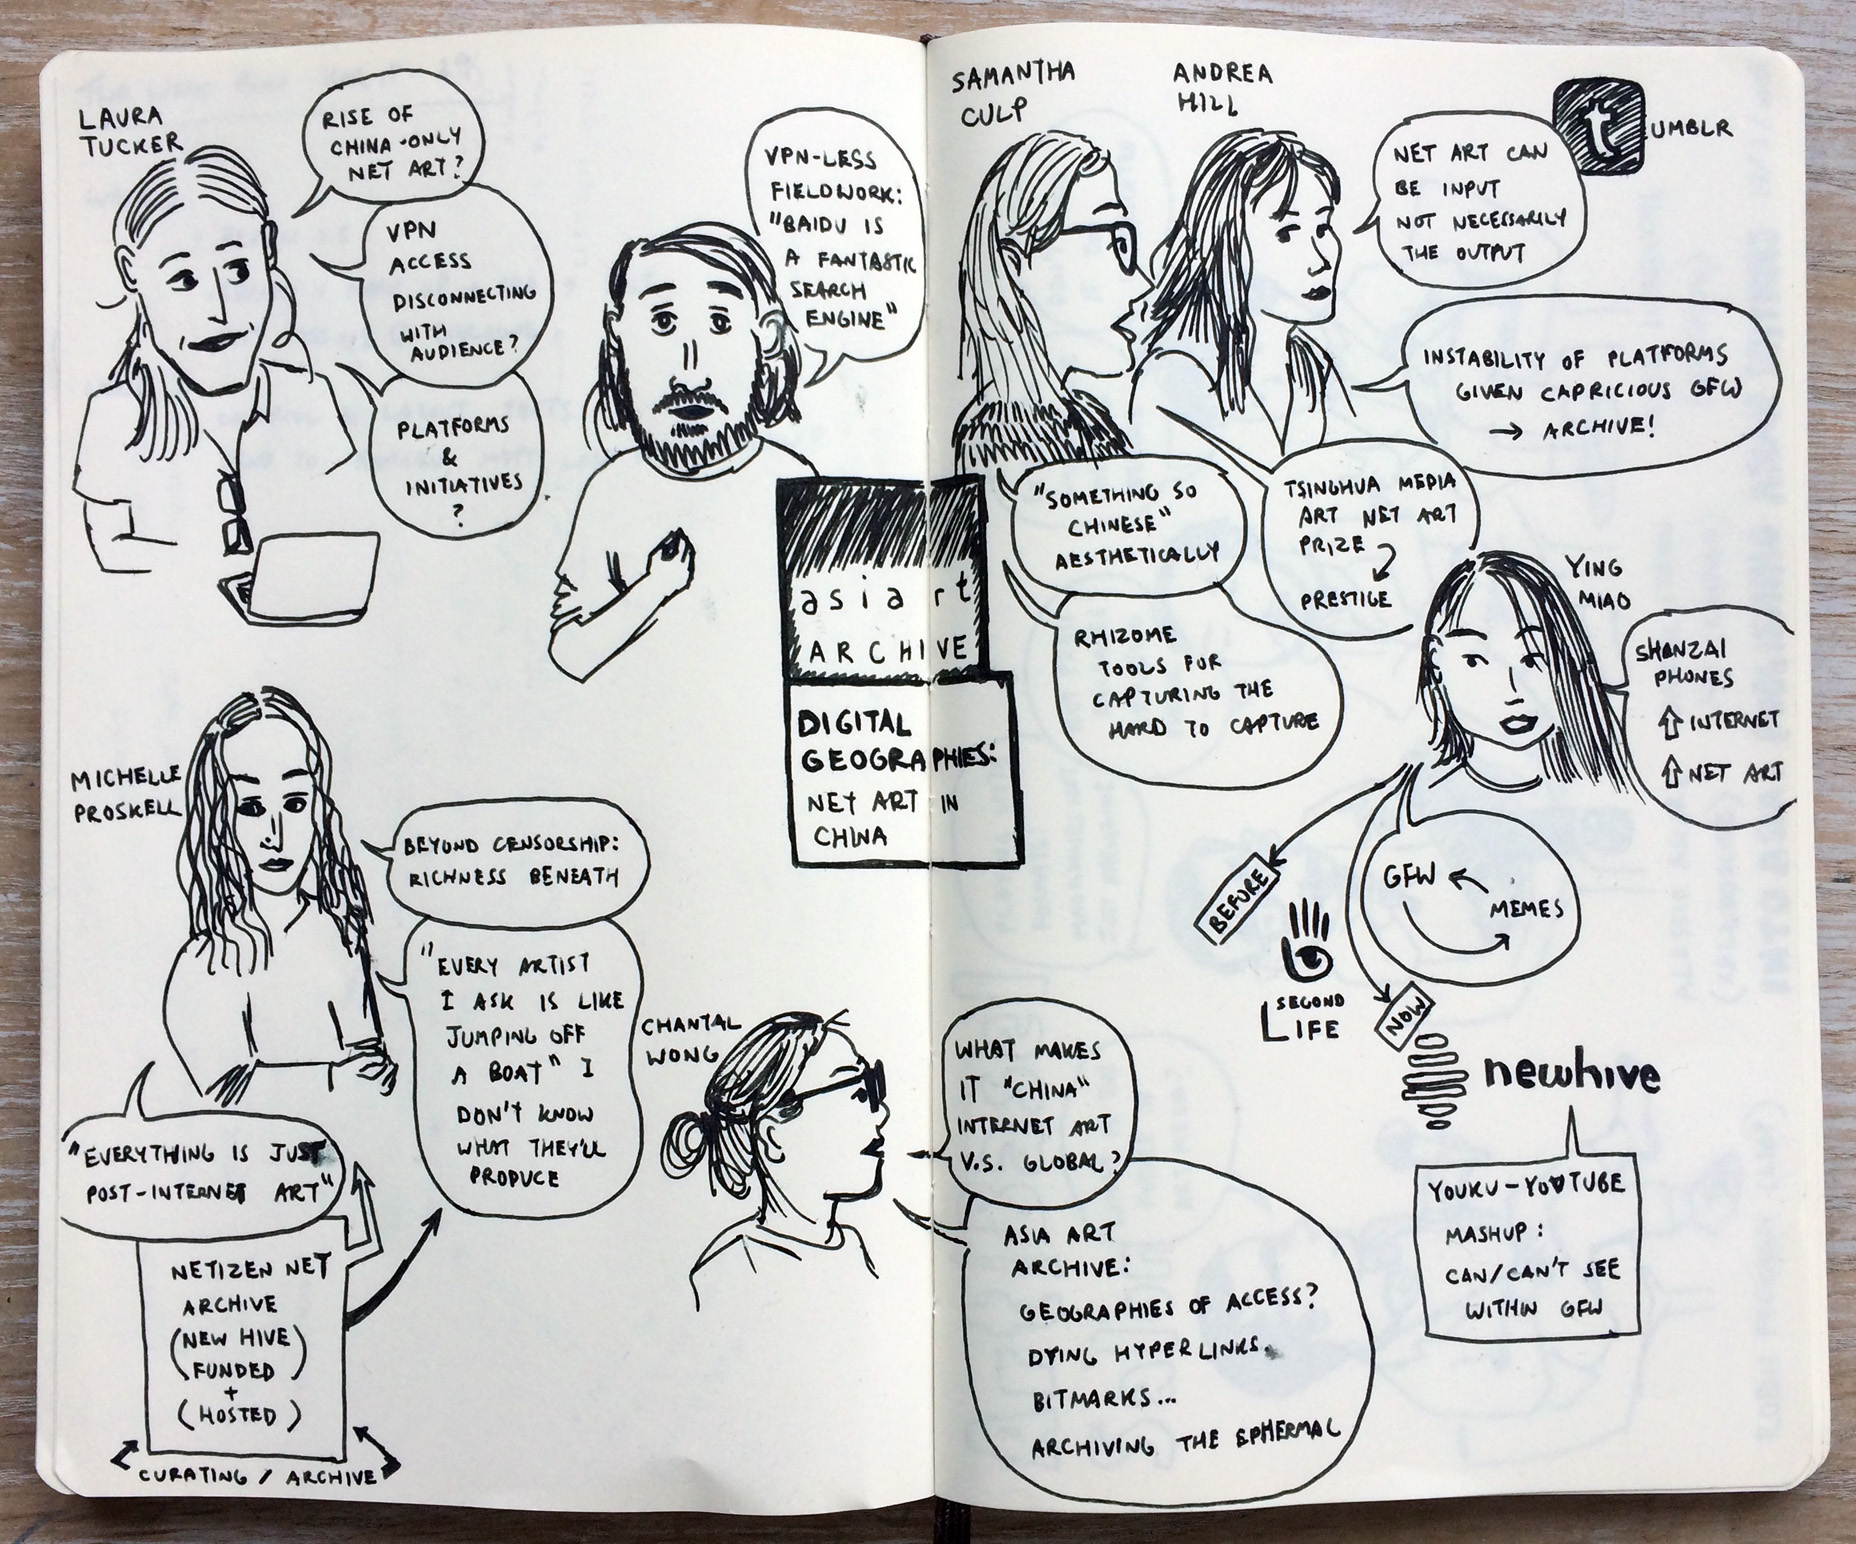 LAURA
TUCKER
RISE OF
CHINA-ONLY
NET ART?
VPN
ACCESS
DISCONNECTING
WITH
AUDIENCE?
PLATFORMS
&
INITIATIVES
?
VPN-LESS
FIELDWORK:
"BAIDU IS
A FANTASTIC
SEARCH
ENGINE"
asia art
ARCHIVE
DIGITAL
GEOGRAPHIES:
NET ART IN
CHINA
MICHELLE
PROSKELL
BEYOND CENSORSHIP:
RICHNESS BENEATH
"EVERY ARTIST
I ASK IS LIKE
JUMPING OFF
A BOAT" I
DON'T KNOW
WHAT THEY'LL
PRODUCE
"EVERYTHING IS JUST
POST-INTERNET ART"
NETIZEN NET
ARCHIVE
(NEW HIVE)
(FUNDED
+
(HOSTED)
CURATING / ARCHIVE
CHANTAL
WONG
WHAT MAKES
IT "CHINA"
INTERNET ART
V.S. GLOBAL?
ASIA ART
ARCHIVE:
GEOGRAPHIES OF ACCESS?
DYING HYPERLINKS.
BITMARKS...
ARCHIVING THE EPHERMAL
SAMANTHA
CULP
ANDREA
HILL
tUMBLR
NET ART CAN
BE INPUT
NOT NECESSARILY
THE OUTPUT
INSTABILITY OF PLATFORMS
GIVEN CAPRICIOUS GFW
→ ARCHIVE!
"SOMETHING SO
CHINESE"
AESTHETICALLY
TSINGHUA MEDIA
ART NET ART
PRIZE
PRESTIGE
RHIZOME
TOOLS FOR
CAPTURING THE
HARD TO CAPTURE
YING
MIAO
SHANZAI
PHONES
⇧ INTERNET
⇧ NET ART
GFW
MEMES
BEFORE
SECOND
LIFE
NOW
newhive
YOUKU-YOUTUBE
MASHUP:
CAN/CAN'T SEE
WITHIN GFW